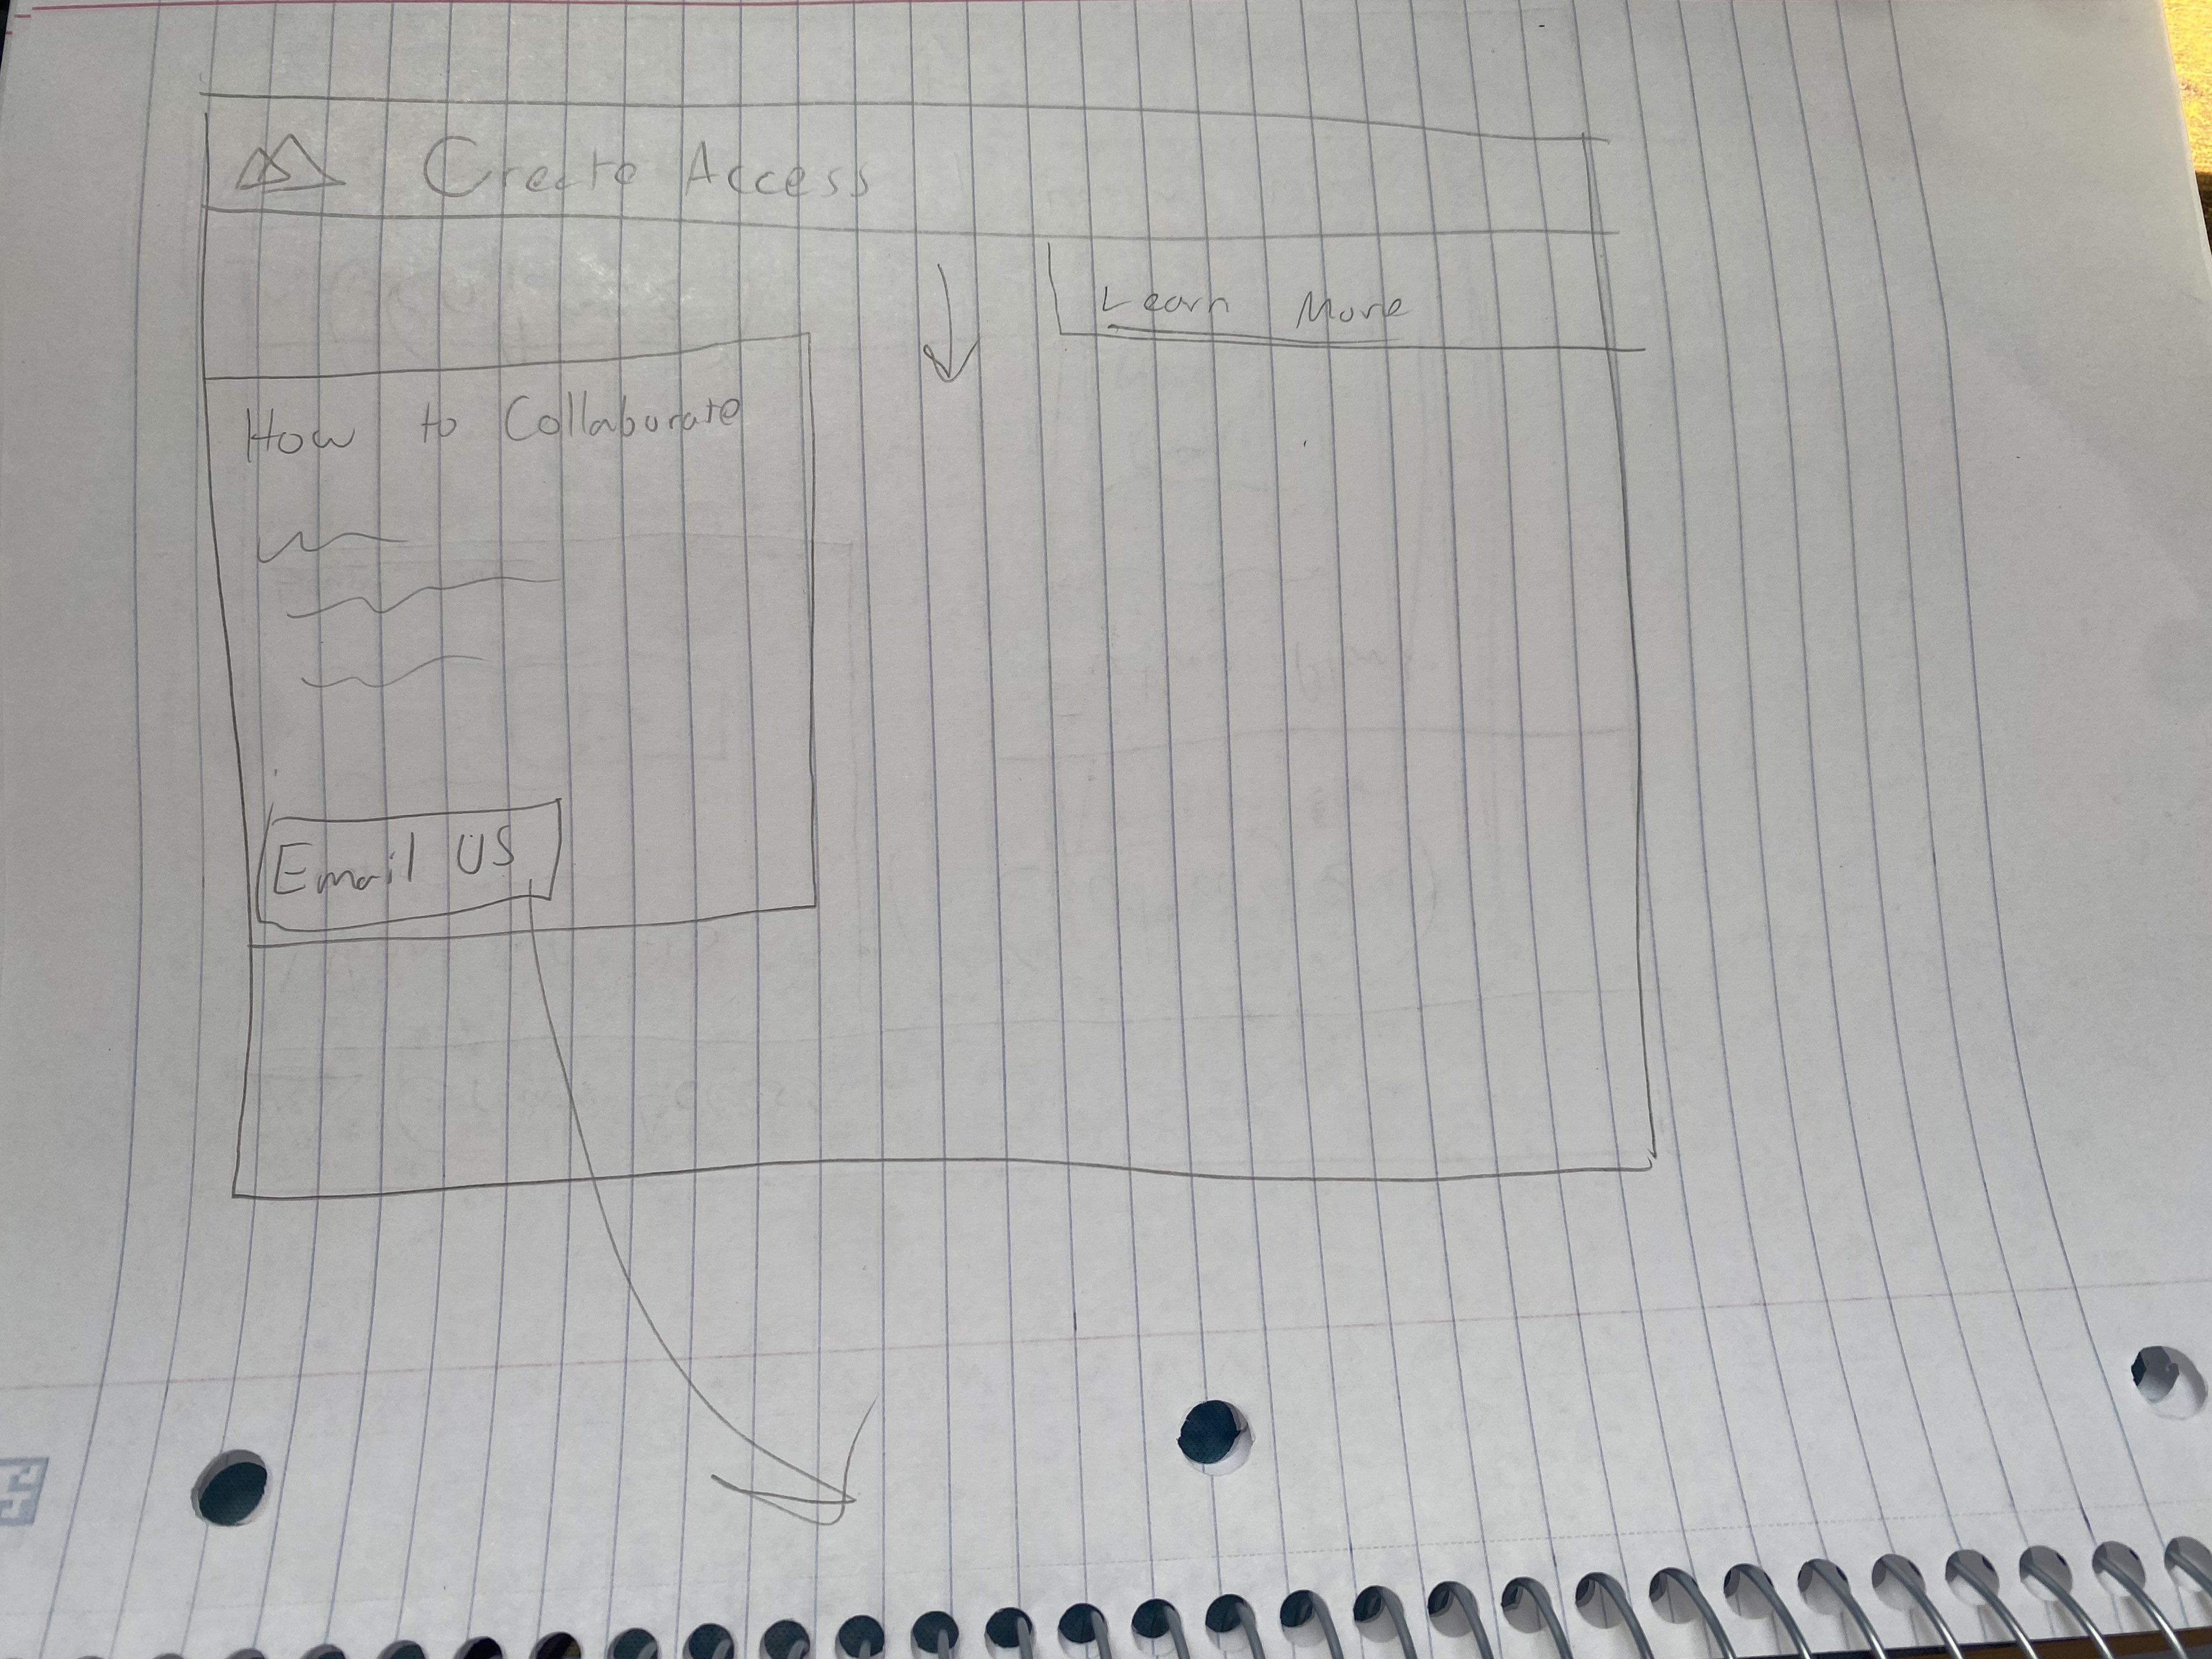 Create Access
Learn More
How to Collaborate
Email US